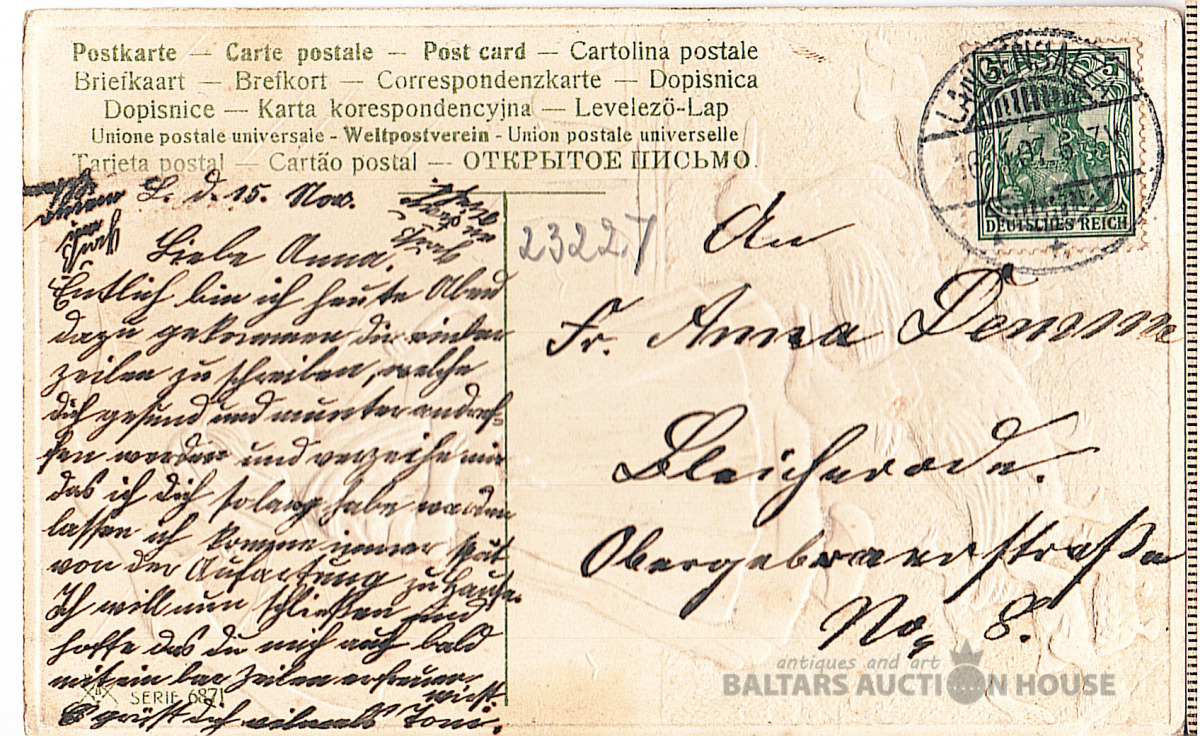 Postkarte — Carte postale — Post card — Cartolina postale
Briefkaart — Brefkort — Correspondenzkarte — Dopisnica
Dopisnice — Karta korespondencyjna — Levelező-Lap
Unione postale universale - Weltpostverein - Union postale universelle
Tarjeta postal — Cartão postal — ОТКРЫТОЕ ПИСЬМО.
LANGENSALZA
5 5
DEUTSCHES REICH
L. d. 15. Nov.
Liebe Anna.
Entlich bin ich heute Abend
dazu gekommen die
zeilen zu schreiben, welche
dich gesund und munter andref-
fen werden und verzeihe mir
das ich dich solang habe warden
lassen ich komme immer spät
von der zu Hause.
Ich will nun schließen und
hoffe das du mich auch bald
mit ein bar Zeilen erfreuen
wirst.
Es grüßt dich vielmals Toni.
SERIE 6871
23227
An
Fr. Anna Demme
Bleicherode.
Obergebraerstraße
No 8.
antiques and art
BALTARS AUCTION HOUSE